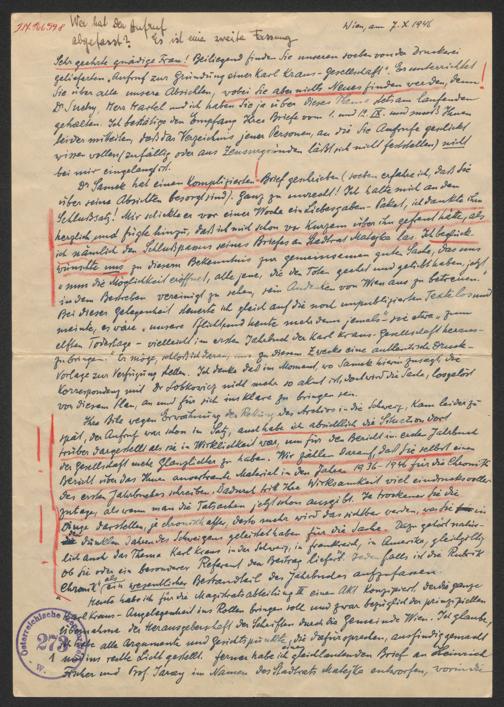 I.N. 166.598
Wer hat den Aufruf
abgefasst? Es ist eine zweite Fassung
Wien, am 7.X.1946
Sehr geehrte gnädige Frau! Beiliegend finden Sie unseren soeben von der Druckerei
gelieferten „Aufruf zur Gründung einer Karl Kraus-Gesellschaft“. Er unterrichtet
Sie über alle unsere Absichten, wobei Sie aber nichts Neues finden werden, denn
Dr. und ich haben Sie ja über dieses laufenden
gehalten. Ich bestätige den Empfang Ihres Briefs vom 1. und 12. IX. und muß Ihnen
leider mitteilen, daß das Verzeichnis jener Personen, an die Sie Aufrufe geschickt
wissen wollen (zufällig oder aus Zensurgründen läßt sich nicht feststellen) nicht
bei mir eingelangt ist.
Dr Samek hat einen komplizierten Brief geschrieben (soeben erfahre ich, daß Sie
über seine Absichten besorgt sind). Ganz zu unrecht! Ich halte mich an den
Schlußsatz! Mir schickte er vor einer Woche ein Liebesgaben-Paket, ich dankte ihm
herzlich und fügte hinzu, daß ich mich schon vor Kurzem über ihn gefreut hätte, als
ich nämlich den Schlußpassus seines Briefes an Stadtrat Matejka las. Ich beglück-
wünschte uns zu diesem Bekenntnis zur gemeinsamen guten Sache, das uns
nun die Möglichkeit eröffnet, alle jene, die den Toten geehrt und geliebt haben, jetzt
in dem Bestreben vereinigt zu sehen, sein Andenken von Wien aus zu betreuen.
Bei dieser Gelegenheit steuerte ich gleich auf die noch unpublizierten Texte los und
meinte, es wäre „unsere Pflicht und heute mehr denn jemals“ sie etwa zum
elften Todestage – vielleicht im ersten Jahrbuch der Karl Kraus-Gesellschaft heraus-
zubringen. Er möge, selbst in deren, uns zu diesem Zwecke eine authentische Druck-
vorlage zur Verfügung stellen. Ich denke daß im Moment, wo Samek hierin zusagt, die
Korrespondenz mit Dr Lobkovicz nicht mehr so akut ist, doch wird die Sache, losgelöst
von diesem Plan, an und für sich ins klare zu bringen sein.
Ihre Bitte wegen Erwähnung der Rettung des Archivs in die Schweiz, kam leider zu
spät, der Aufruf war schon im Satz, auch habe ich absichtlich die Situation dort
trüber dargestellt als sie in Wirklichkeit war, um für den Bericht im ersten Jahrbuch
der Gesellschaft mehr Glanzlichter zu haben. Wir zählen darauf, daß Sie selbst einen
Bericht über das Ihnen anvertraute Material in den Jahren 1936-1946 für die Chronik
des ersten Jahrbuches schreiben. Dadurch tritt Ihre Wirksamkeit viel eindrucksvoller
zutage, als wenn man die Tatsachen jetzt schon ausgibt. Je trockener Sie die
Dinge darstellen, je chronikhafter, desto mehr wird das sichtbar werden, was Sie in
den dunklen Jahren des Schweigens geleistet haben für die Sache. Dazu gehört natür-
lich auch das Thema Karl Kraus in der Schweiz, in Frankreich, in Amerika, gleichgiltig
ob Sie oder ein besonderer Referent den Beitrag liefert. Jedenfalls, ist die Rubrik
„Chronik“ als ein wesentlicher Bestandteil des Jahrbuches aufzufassen.
Heute habe ich für die Magistratsabteilung II einen Akt konzipiert, der die ganze
Karl Kraus-Angelegenheit ins Rollen bringen soll und zwar bezüglich der prinzipiellen
Übernahme der Herausgeberschaft der Schriften durch die Gemeinde Wien. Ich glaube,
ich habe alle Argumente und Gesichtspunkte, die dafür sprechen, ausfindig gemacht
und ins rechte Licht gestellt. Ferner habe ich gleichlautenden Brief an Heinrich
Fischer und Prof Jaray im Namen des Stadtrats Matejka entworfen, worin die
Österreichische
273
W.
1